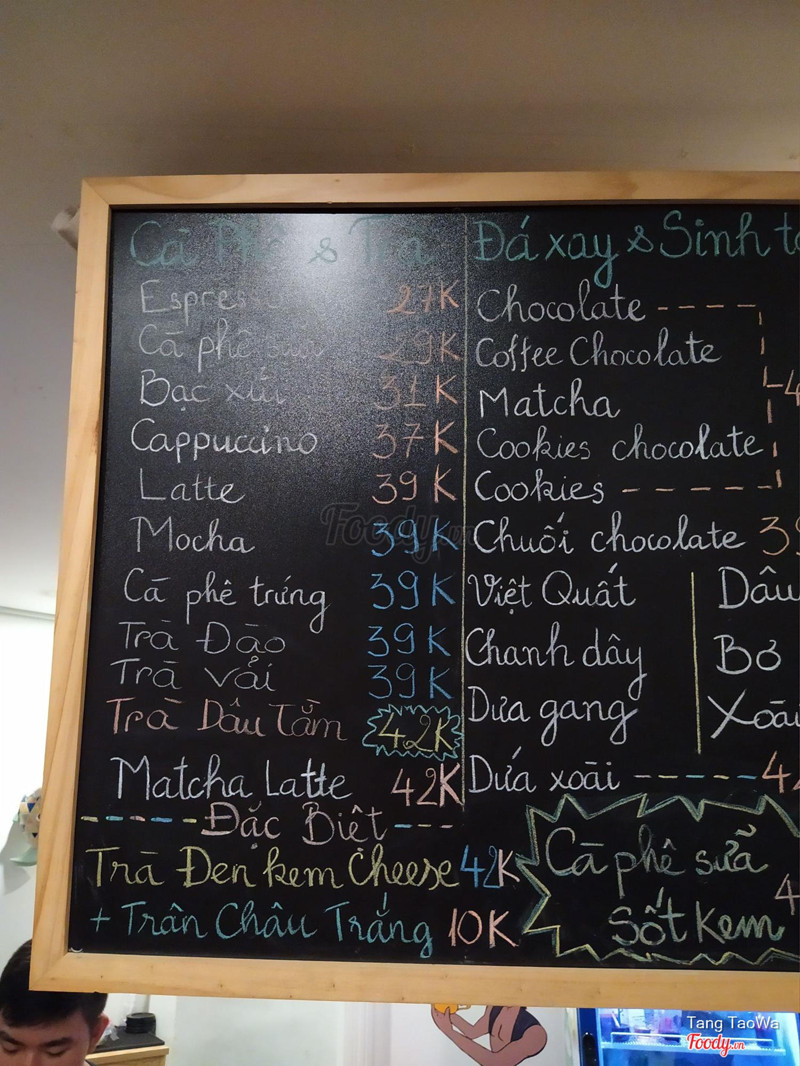 Cà Phê & Trà
Espresso 27K
Cà phê sữa 29K
Bạc xỉu 31K
Cappuccino 37K
Latte 39K
Mocha 39K
Cà phê trứng 39K
Trà Đào 39K
Trà vải 39K
Trà Dâu Tằm 42K
Matcha Latte 42K
Đặc Biệt
Trà Đen kem Cheese 42K
+ Trân Châu Trắng 10K
Đá xay & Sinh tố
Chocolate
Coffee Chocolate
Matcha
Cookies chocolate
Cookies
Chuối chocolate
Việt Quất Dâu
Chanh dây Bơ
Dưa gang Xoài
Dứa xoài
Cà phê sữa
Sốt Kem
Foody.vn
Tang TaoWa
Foody.vn